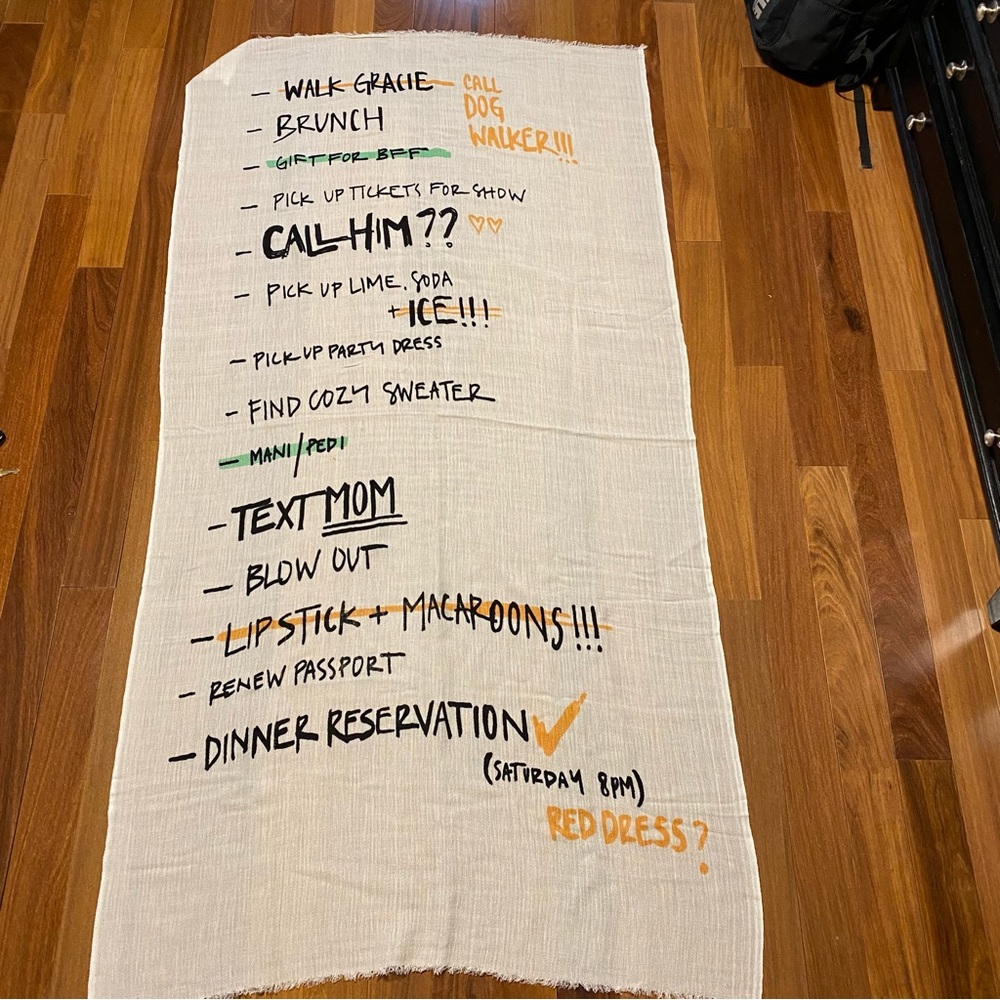 - WALK GRACIE CALL
DOG
WALKER!!!
- BRUNCH
- GIFT FOR BFF
- PICK UP TICKETS FOR SHOW
- CALL HIM?? ♡♡
- PICK UP LIME. SODA
+ ICE!!!
- PICK UP PARTY DRESS
- FIND COZY SWEATER
- MANI/PEDI
- TEXT MOM
- BLOW OUT
- LIPSTICK + MACAROONS!!!
- RENEW PASSPORT
- DINNER RESERVATION ✓
(SATURDAY 8PM)
RED DRESS?